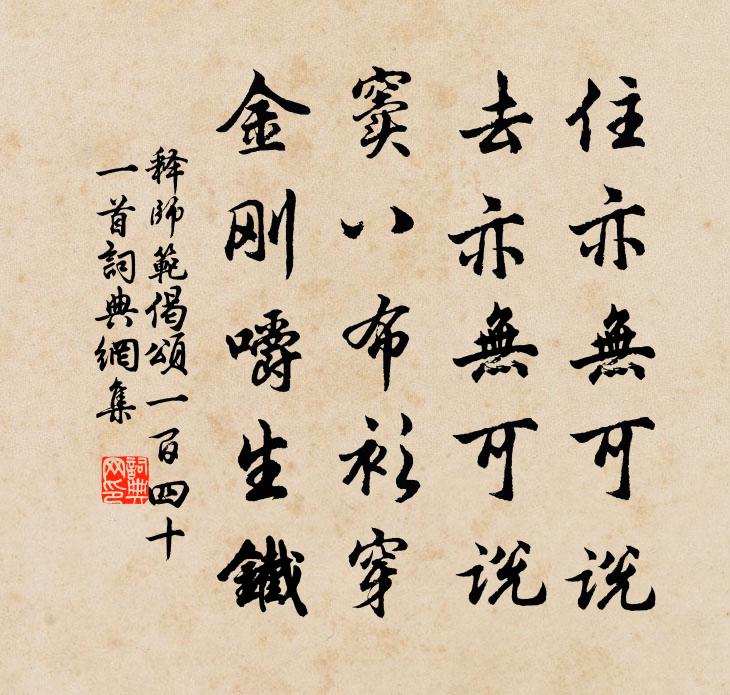 住亦無可説
去亦無可説
竇八布衫穿
金剛嚼生鐵
释師範偈頌一百四十
一首詞典網集
詞典网印